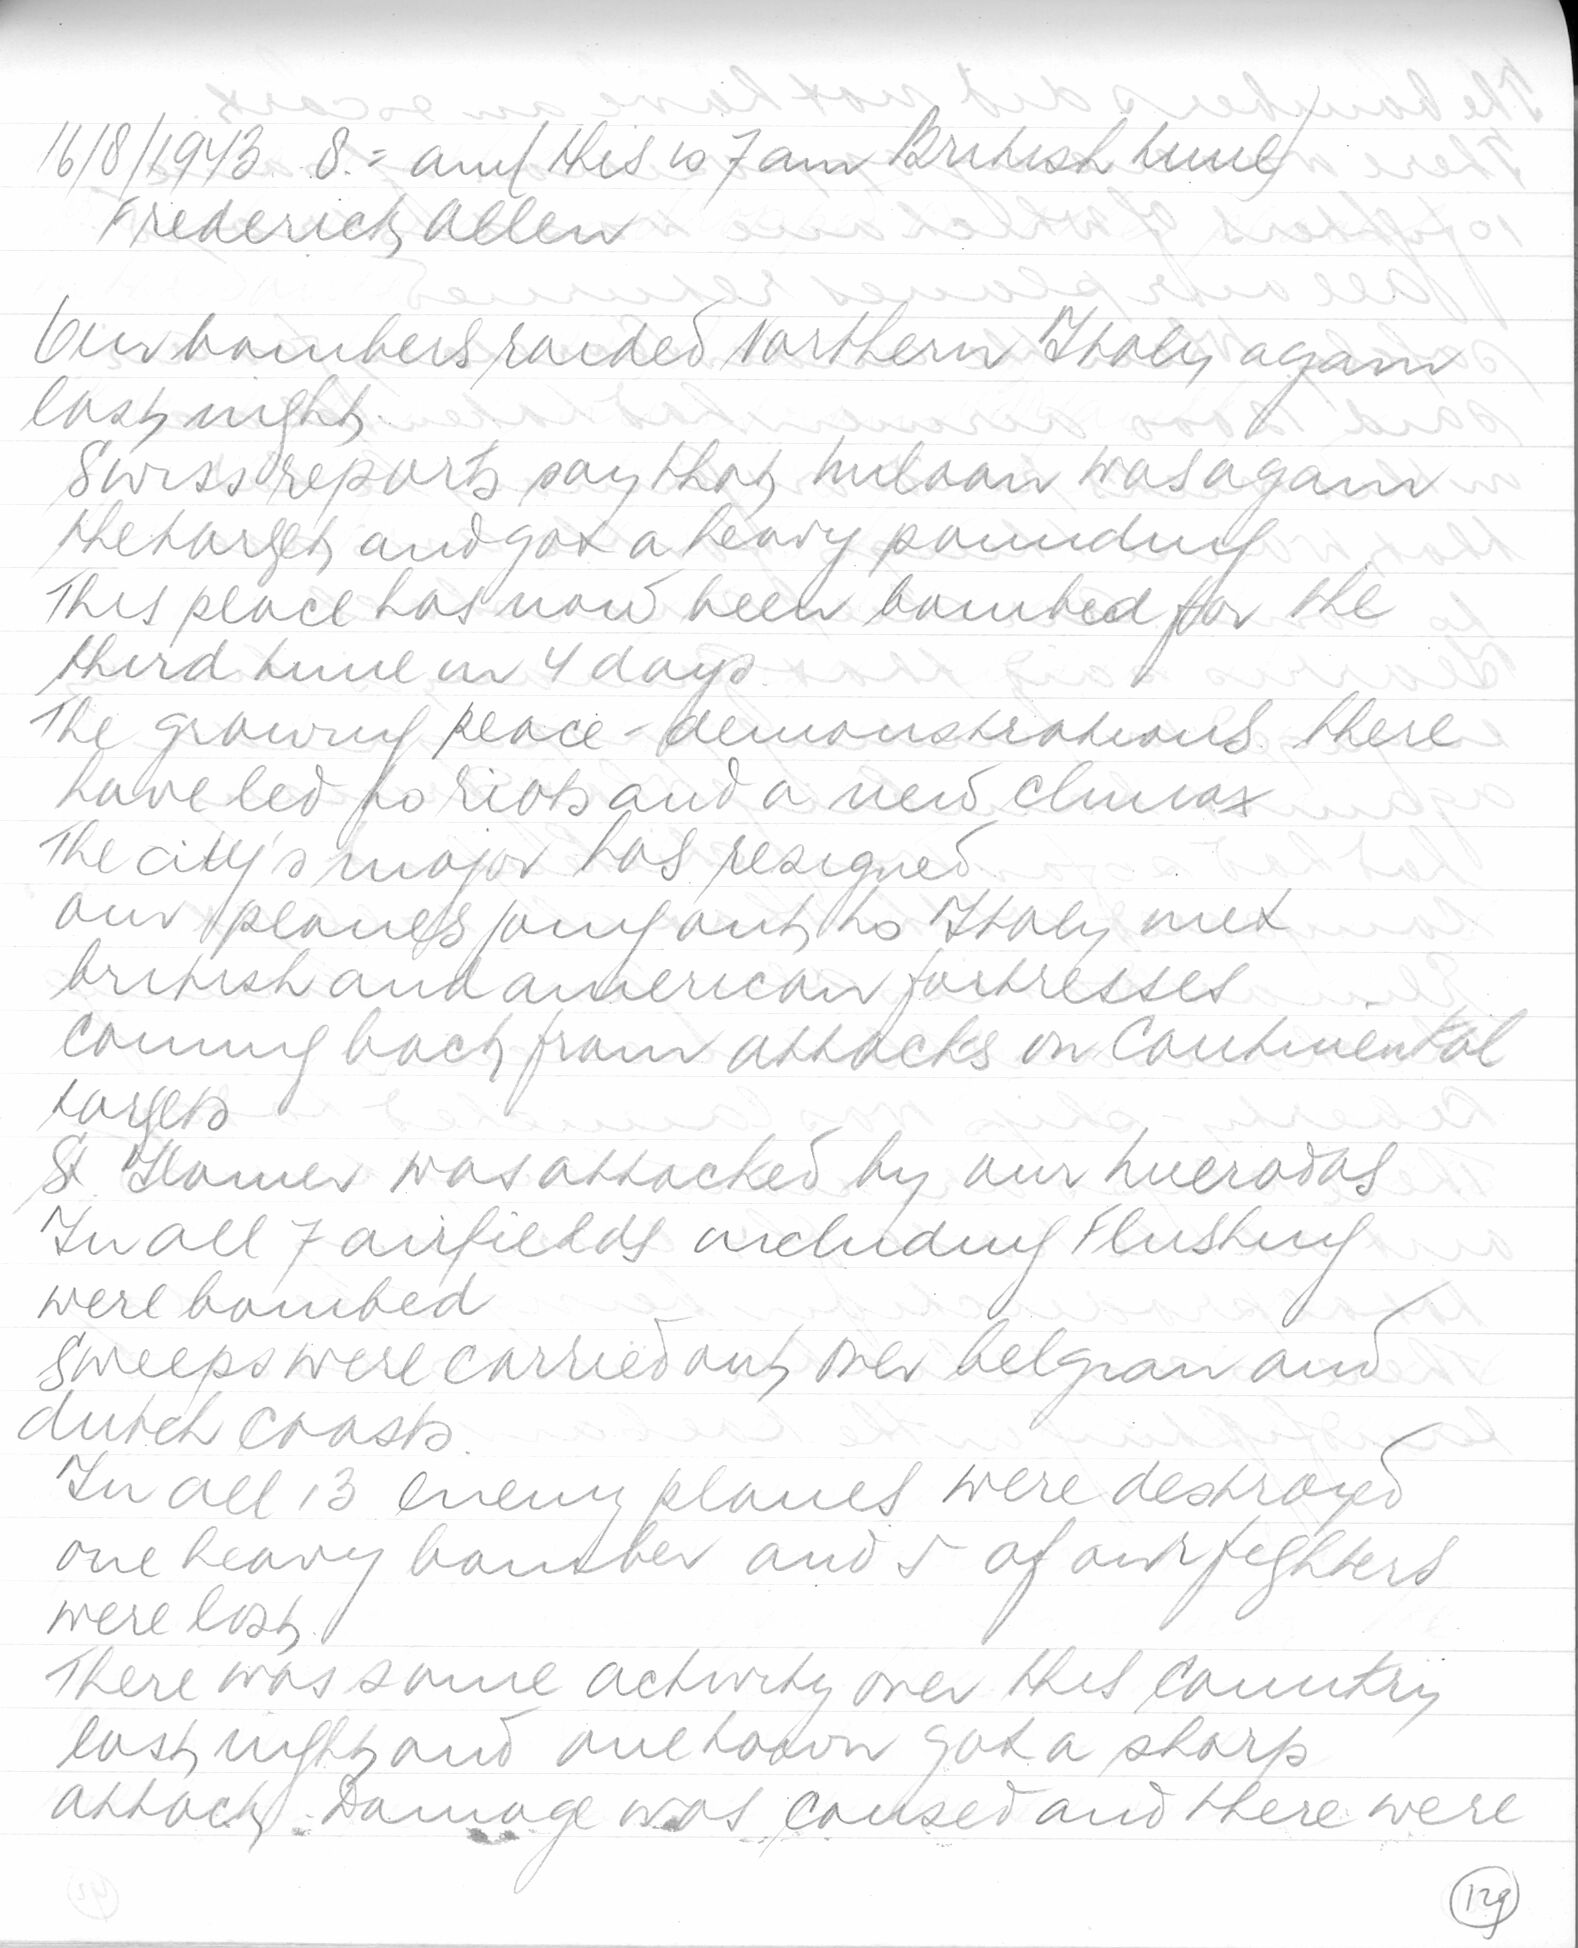 16/8/1943. 8.= am (this is 7 am British time)
Frederick Allen
Our bombers raided Northern Italy again
last night.
Swiss reports say that Milaan was again
the target and got a heavy pounding
This place has now been bombed for the
third time in 4 days.
The growing peace-demonstrations there
have led to riots and a new climax
The city's major has resigned
our planes going out to Italy met
british and american fortresses
coming back from attacks on Continental
targets
St. was attacked by our
In all 7 airfields including Flushing
were bombed
Sweeps were carried out over belgian and
dutch coasts.
In all 13 enemy planes were destroyed
one heavy bomber and 5 of our fighters
were lost.
There was some activity over this country
last night and one town got a sharp
attack. Damage was caused and there were
129